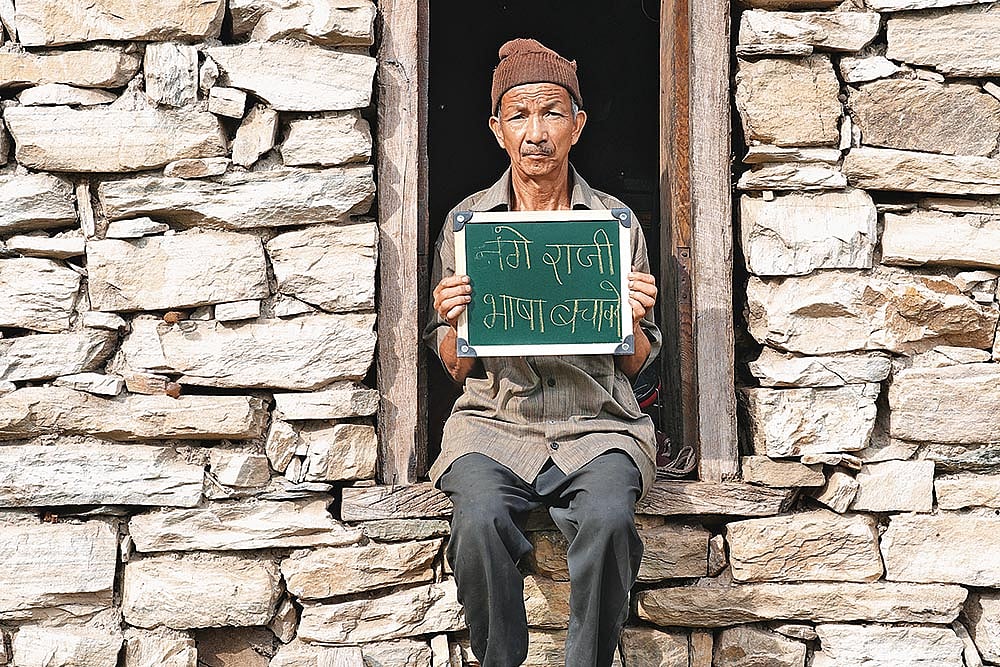 नंगे राजी
भाषा बचावे